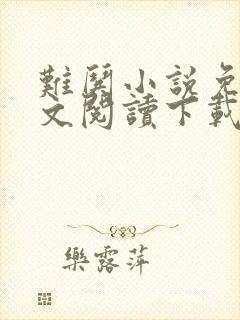 難閱小說免
文閱讀下載
樂露萍